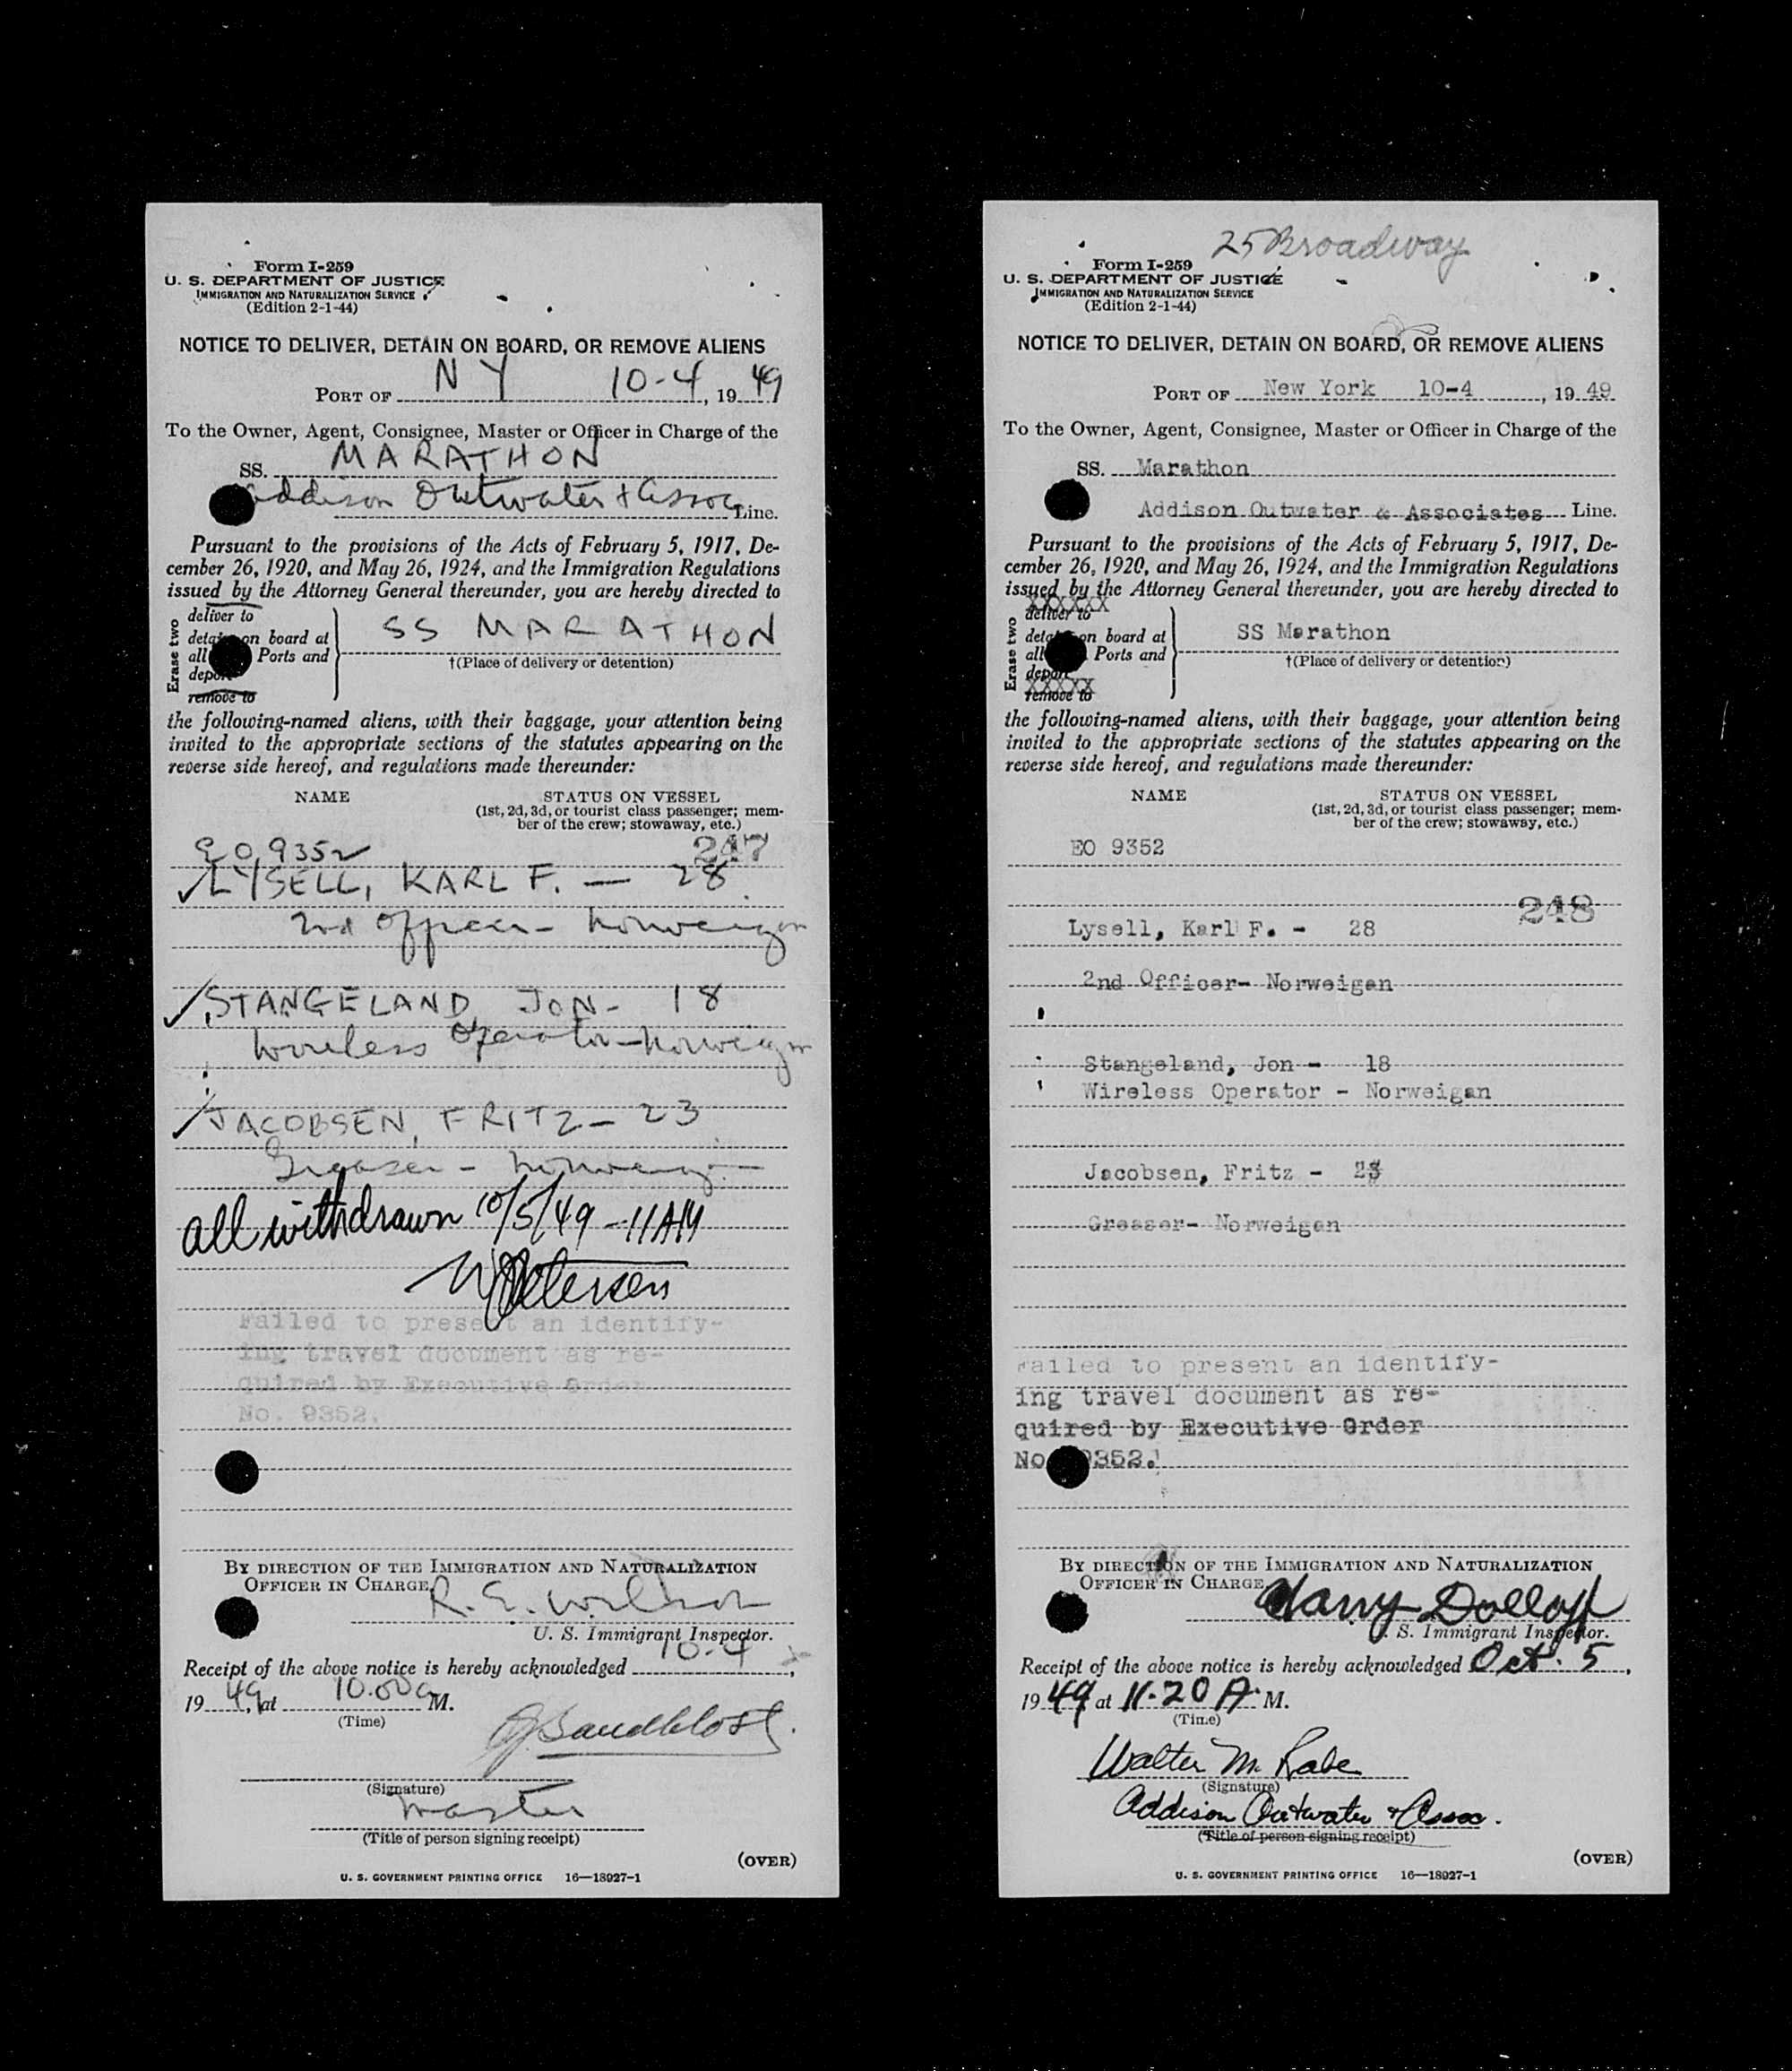 Form I-259
U. S. DEPARTMENT OF JUSTICE
IMMIGRATION AND NATURALIZATION SERVICE
(Edition 2-1-44)
NOTICE TO DELIVER, DETAIN ON BOARD, OR REMOVE ALIENS
PORT OF NY 10-4, 19 49
To the Owner, Agent, Consignee, Master or Officer in Charge of the
SS. MARATHON
Addison Outwater + Assoc Line.
Pursuant to the provisions of the Acts of February 5, 1917, De-
cember 26, 1920, and May 26, 1924, and the Immigration Regulations
issued by the Attorney General thereunder, you are hereby directed to
Erase two
deliver to
detain on board at
all Ports and
deport
remove to
SS MARATHON
†(Place of delivery or detention)
the following-named aliens, with their baggage, your attention being
invited to the appropriate sections of the statutes appearing on the
reverse side hereof, and regulations made thereunder:
NAME STATUS ON VESSEL
(1st, 2d, 3d, or tourist class passenger; mem-
ber of the crew; stowaway, etc.)
EO 9352 247
LYSELL, KARL F. — 28
2nd Officer - Norweigan
STANGELAND, JON - 18
Wireless Operator - Norweigan
JACOBSEN, FRITZ - 23
Greaser - Norweigan
all withdrawn 10/5/49 - 11AM
Petersen
Failed to present an identify-
ing travel document as re-
quired by Executive Order
No. 9352.
BY DIRECTION OF THE IMMIGRATION AND NATURALIZATION
OFFICER IN CHARGE
R. E. Wilson
U. S. Immigrant Inspector.
Receipt of the above notice is hereby acknowledged 10-4,
19 49, at 10.00 a M.
(Time)
(Signature)
Master
(Title of person signing receipt)
(OVER)
U. S. GOVERNMENT PRINTING OFFICE 16—18927-1
25 Broadway
Form I-259
U. S. DEPARTMENT OF JUSTICE
IMMIGRATION AND NATURALIZATION SERVICE
(Edition 2-1-44)
NOTICE TO DELIVER, DETAIN ON BOARD, OR REMOVE ALIENS
PORT OF New York 10-4, 19 49
To the Owner, Agent, Consignee, Master or Officer in Charge of the
SS. Marathon
Addison Outwater & Associates Line.
Pursuant to the provisions of the Acts of February 5, 1917, De-
cember 26, 1920, and May 26, 1924, and the Immigration Regulations
issued by the Attorney General thereunder, you are hereby directed to
Erase two
deliver to
detain on board at
all Ports and
deport
remove to
SS Marathon
†(Place of delivery or detention)
the following-named aliens, with their baggage, your attention being
invited to the appropriate sections of the statutes appearing on the
reverse side hereof, and regulations made thereunder:
NAME STATUS ON VESSEL
(1st, 2d, 3d, or tourist class passenger; mem-
ber of the crew; stowaway, etc.)
EO 9352
248
Lysell, Karl F. - 28
2nd Officer- Norweigan
Stangeland, Jon - 18
Wireless Operator - Norweigan
Jacobsen, Fritz - 23
Greaser- Norweigan
Failed to present an identify-
ing travel document as re-
quired by Executive Order
No. 9352.
BY DIRECTION OF THE IMMIGRATION AND NATURALIZATION
OFFICER IN CHARGE
Harry Dolloff
U. S. Immigrant Inspector.
Receipt of the above notice is hereby acknowledged Oct. 5,
19 49 at 11.20 A. M.
(Time)
Walter M. Rabe
(Signature)
Addison Outwater & Assoc.
(Title of person signing receipt)
(OVER)
U. S. GOVERNMENT PRINTING OFFICE 16—18927-1